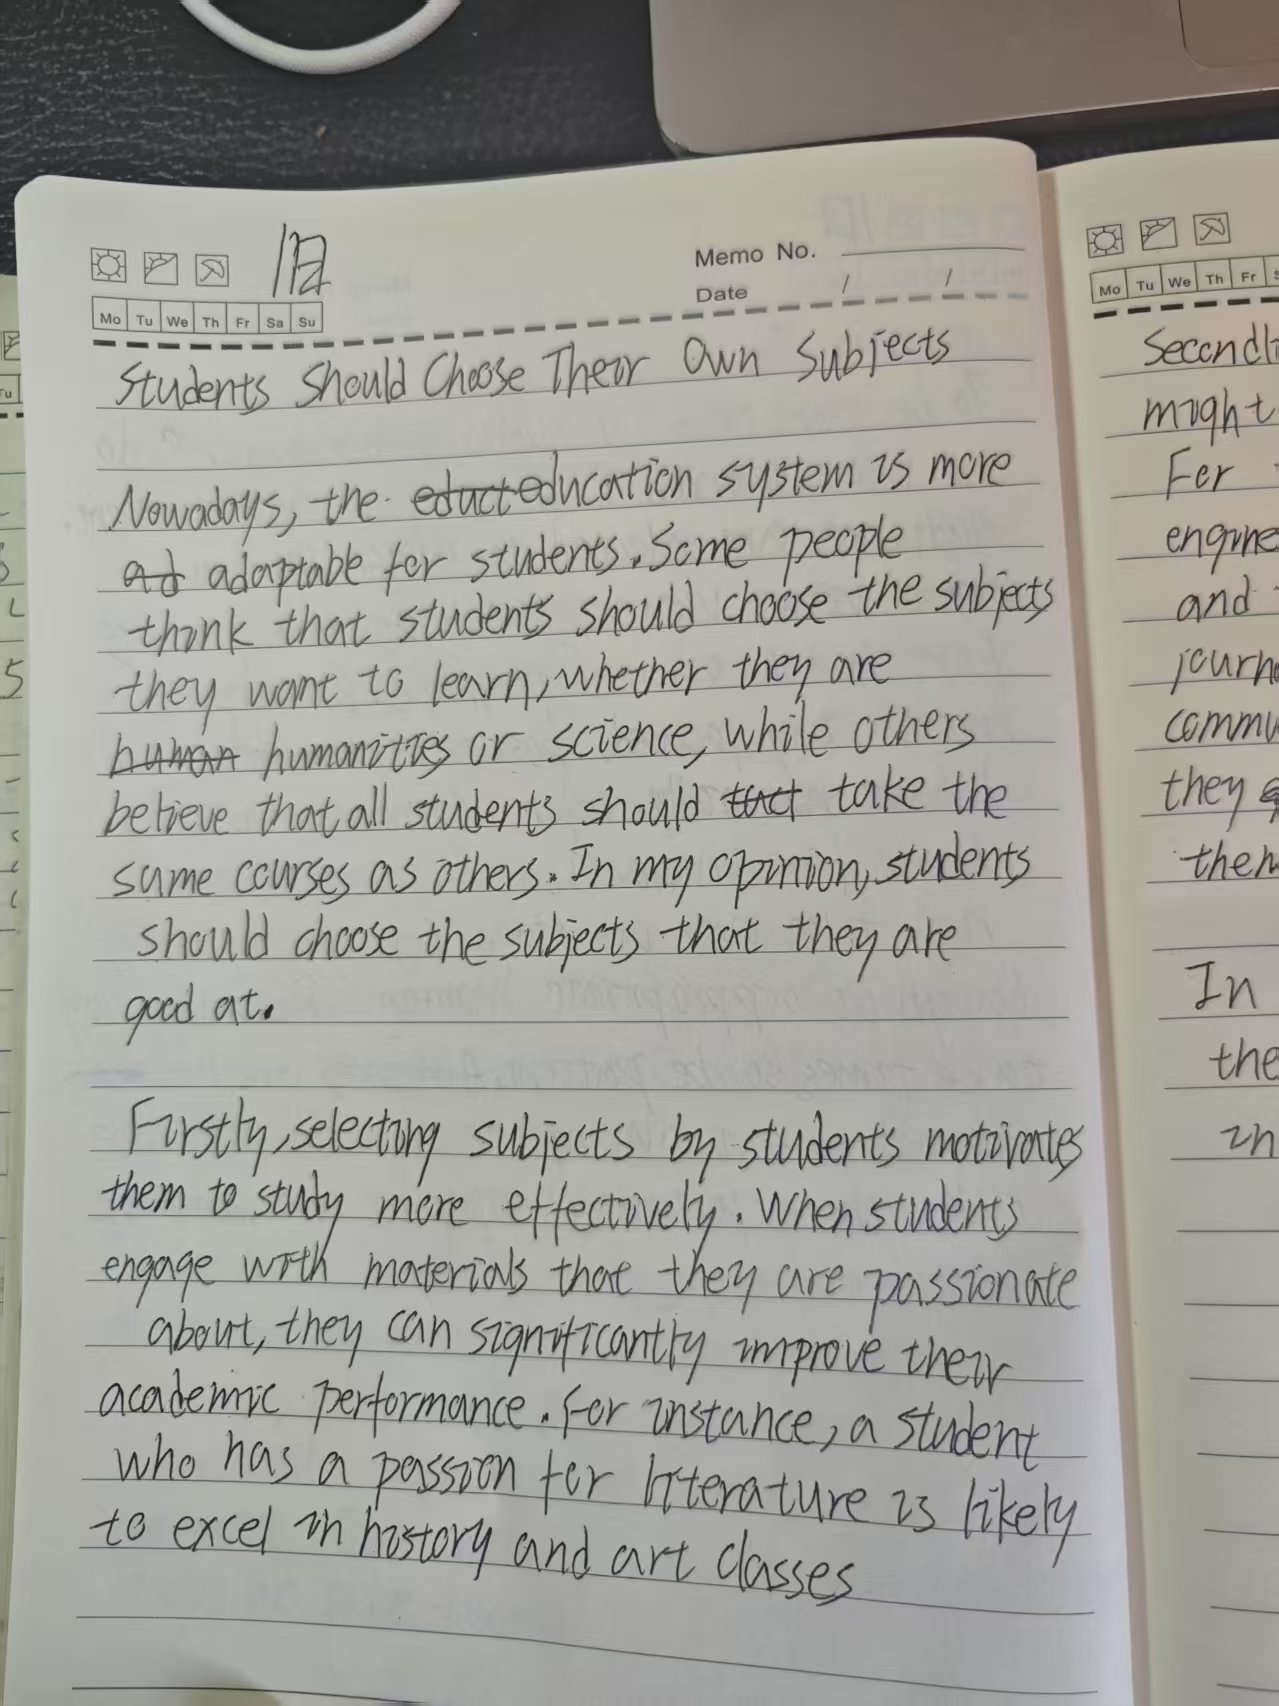 Memo No.
Date / /
Mo Tu We Th Fr Sa Su
Students Should Choose Their Own Subjects
Nowadays, the educt education system is more
ad adaptable for students. Some people
think that students should choose the subjects
they want to learn, whether they are
human humanities or science, while others
believe that all students should take the
same courses as others. In my opinion, students
should choose the subjects that they are
good at.
Firstly, selecting subjects by students motivates
them to study more effectively. When students
engage with materials that they are passionate
about, they can significantly improve their
academic performance. For instance, a student
who has a passion for literature is likely
to excel in history and art classes
Mo Tu We Th Fr
might
For
and
they
In
in